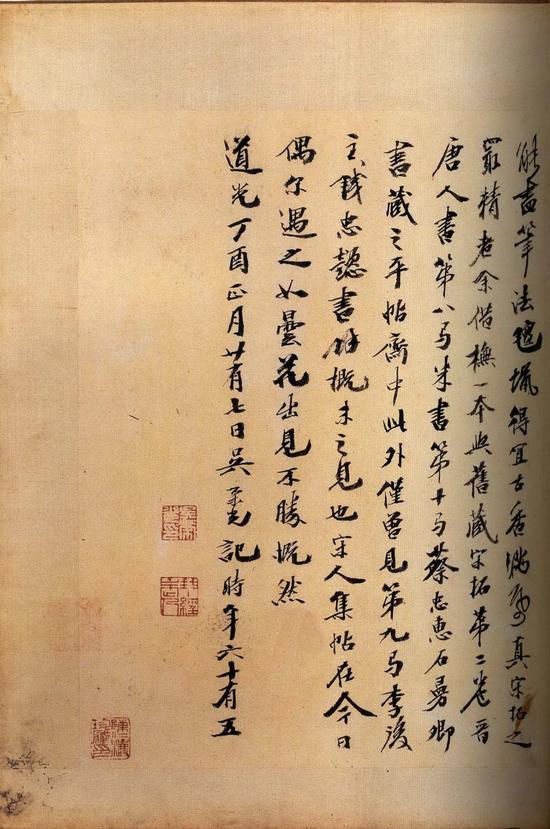 能書筆法氊蠟得宜古香滿勿真宋拓之
最精者余借橅一本與舊藏宋拓第二卷晉
唐人書第八与米書第十与蔡忠惠石曼卿
書藏之平帖齋中此外僅曾見第九与李後
主錢忠懿書餘概未之見也宋人集帖在今日
偶尔遇之如曇花出見不勝慨然
道光丁酉正月廿有七日吳榮光記時年六十有五